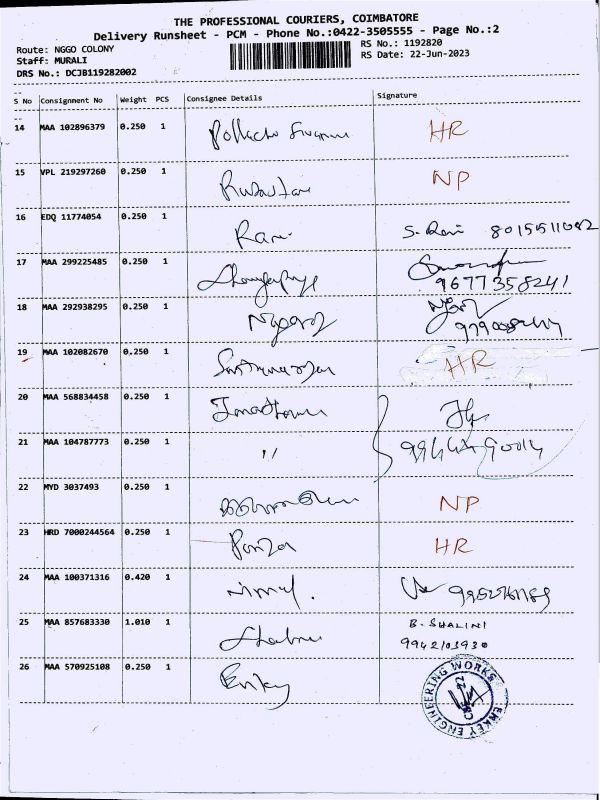 THE PROFESSIONAL COURIERS, COIMBATORE
Delivery Runsheet - PCM - Phone No.:0422-3505555 - Page No.:2
Route: NGGO COLONY
RS No.: 1192820
Staff: MURALI
RS Date: 22-Jun-2023
DRS No.: DCJB119282002
S No Consignment No Weight PCS Consignee Details Signature
14 MAA 102896379 0.250 1 HR
15 VPL 219297260 0.250 1 NP
16 EDQ 11774054 0.250 1 Rani S. Rani
17 MAA 299225485 0.250 1
9677358241
18 MAA 292938295 0.250 1
19 MAA 102082670 0.250 1 HR
20 MAA 568834458 0.250 1
21 MAA 104787773 0.250 1 "
22 MYD 3037493 0.250 1 NP
23 HRD 7000244564 0.250 1 HR
24 MAA 100371316 0.420 1 Nirmal.
25 MAA 857683330 1.010 1 B. SHALINI
9942103930
26 MAA 570925108 0.250 1
ENKEY ENGINEERING WORKS
CBE-22